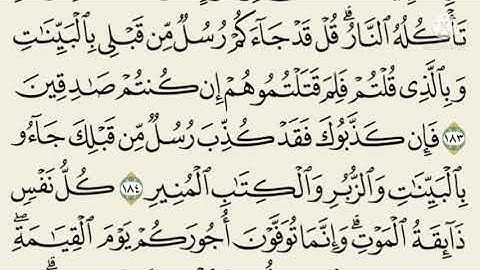 تَأۡكُلُهُ ٱلنَّارُۗ قُلۡ قَدۡ جَآءَكُمۡ رُسُلٞ مِّن قَبۡلِي بِٱلۡبَيِّنَٰتِ
وَبِٱلَّذِي قُلۡتُمۡ فَلِمَ قَتَلۡتُمُوهُمۡ إِن كُنتُمۡ صَٰدِقِينَ
١٨٣ فَإِن كَذَّبُوكَ فَقَدۡ كُذِّبَ رُسُلٞ مِّن قَبۡلِكَ جَآءُو
بِٱلۡبَيِّنَٰتِ وَٱلزُّبُرِ وَٱلۡكِتَٰبِ ٱلۡمُنِيرِ ١٨٤ كُلُّ نَفۡسٖ
ذَآئِقَةُ ٱلۡمَوۡتِۗ وَإِنَّمَا تُوَفَّوۡنَ أُجُورَكُمۡ يَوۡمَ ٱلۡقِيَٰمَةِۖ